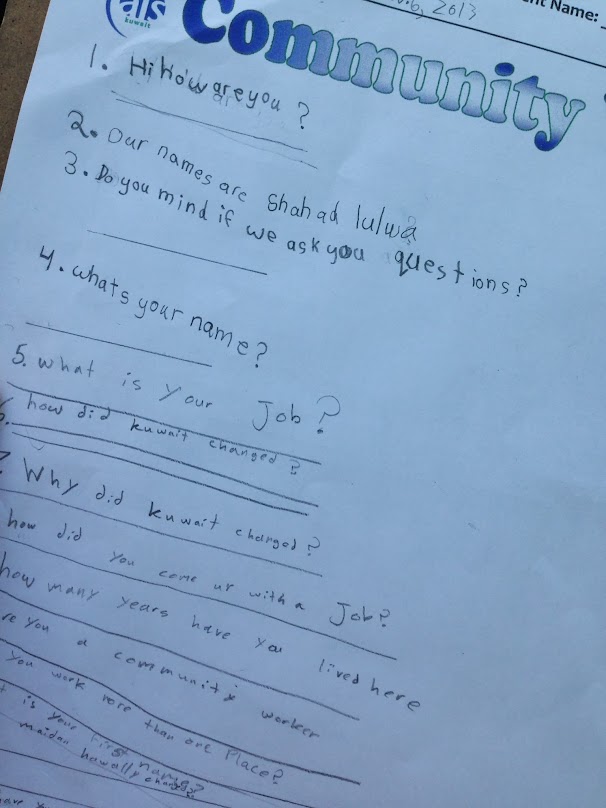 ais
kuwait
6, 2013
nt Name:
Community
1. Hi how are you?
2. Our names are Shahad lulwa
3. Do you mind if we ask you questions?
4. whats your name?
5. what is your Job?
6. how did kuwait changed?
7. Why did kuwait changed?
how did you come up with a Job?
how many years have you lived here
re you a community worker
you work more than one Place?
t is your first name?
maidan hawally change